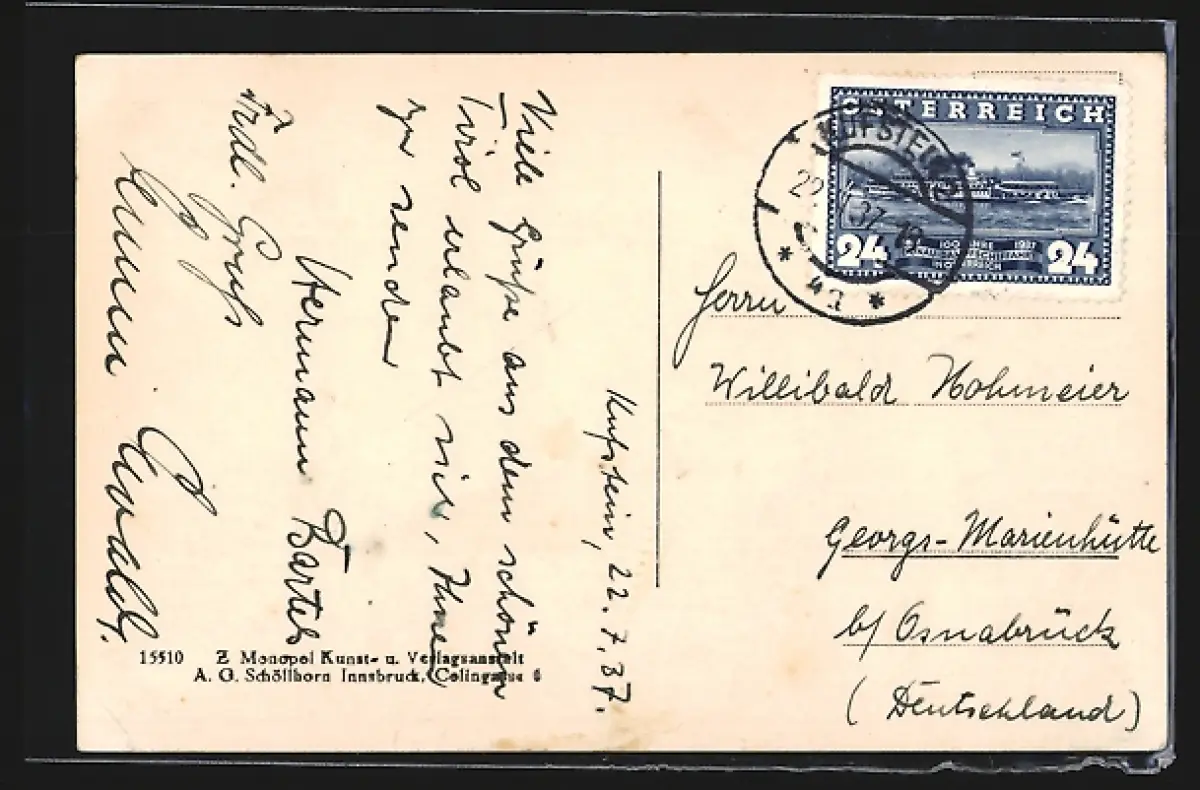 Kufstein, 22.7.37.
Viele Grüße aus dem schönen
Tirol erlaubt sich, Ihnen
zu senden
Hermann Bartels
Frdl. Gruß
Ewald.
15510 Z Monopol Kunst- u. Verlagsanstalt
A. G. Schöllhorn Innsbruck, Colingasse 6
ÖSTERREICH
24 100 JAHRE 1937 24
DONAUDAMPFSCHIFFAHRT
IN ÖSTERREICH
KUFSTEIN
22. 37 19
* 4a *
Herrn
Willibald Hohmeier
Georgs-Marienhütte
b/ Osnabrück
(Deutschland)